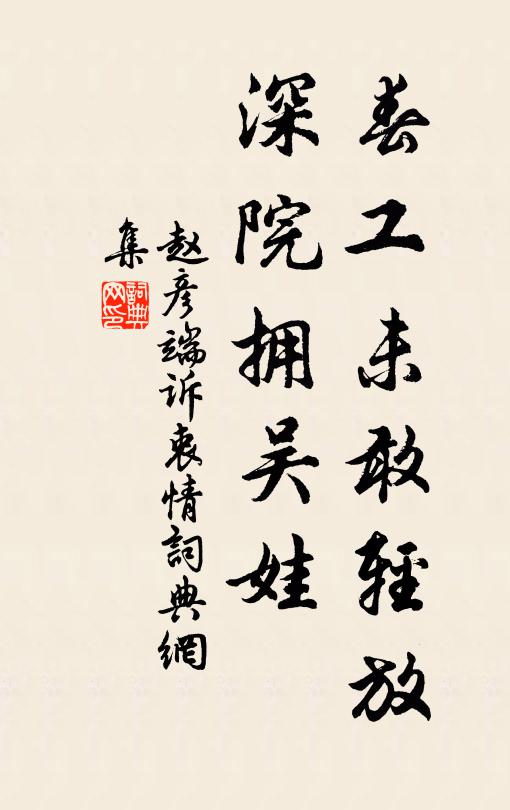 春工未敢輕放
深院拥吴娃
赵彦端诉衷情詞典網
集
詞典网印